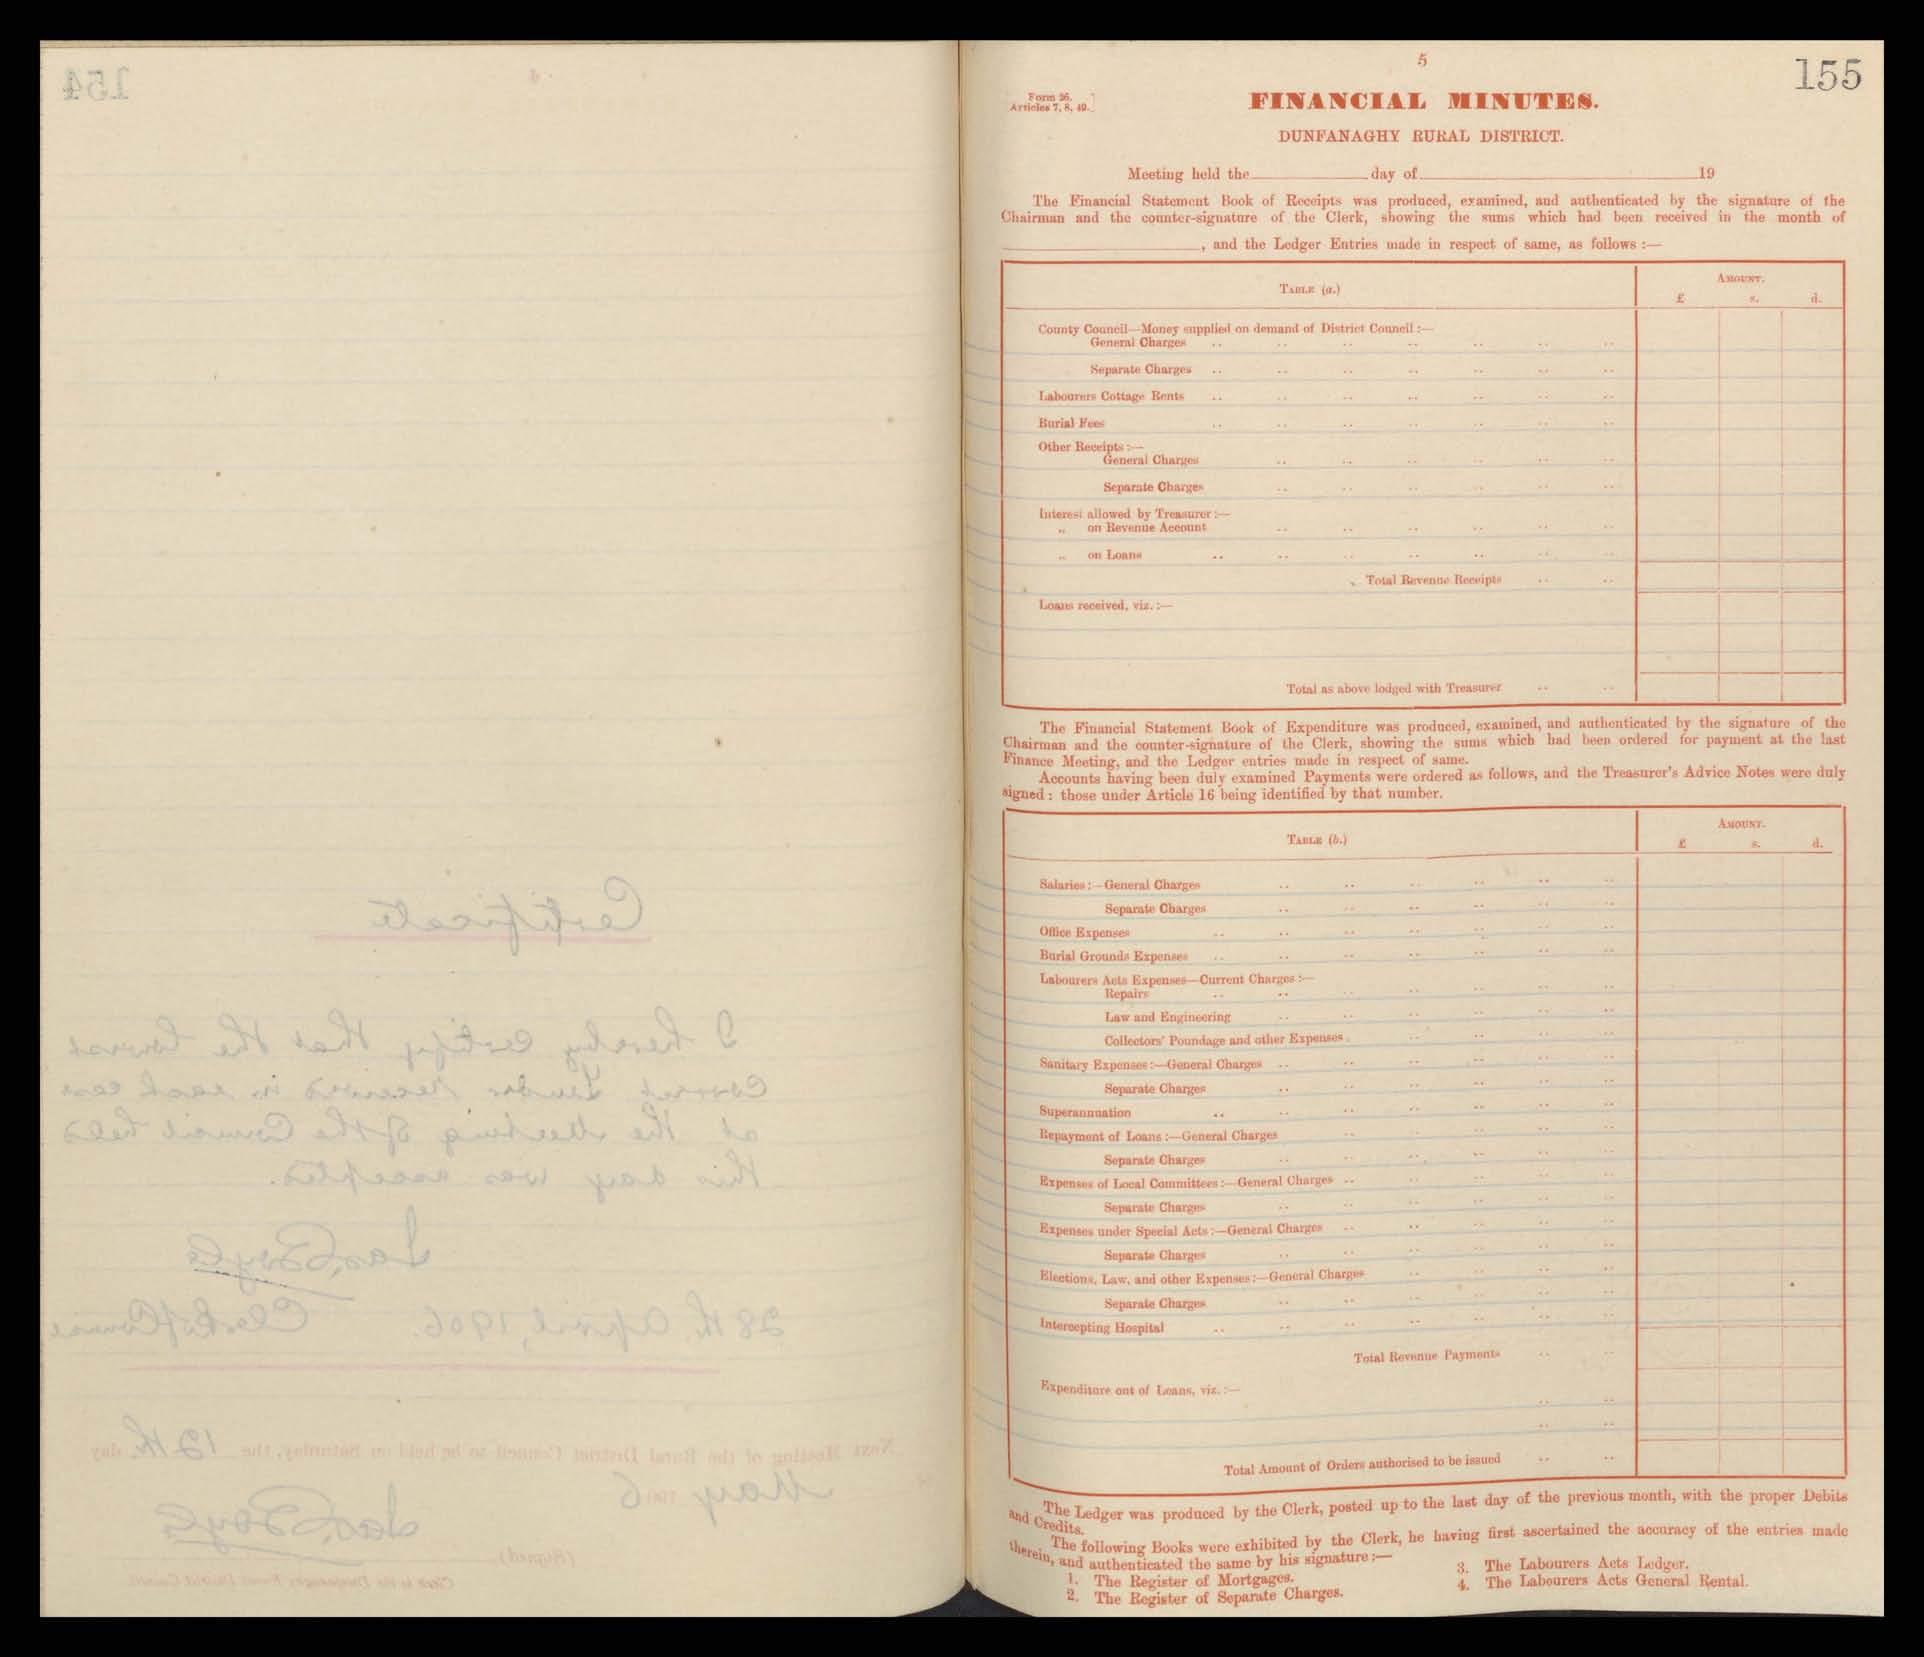 154
4
Certificate
I hereby certify that the lowest
correct tender received in each case
at the Meeting of the Council held
this day was accepted.
Jas. Boyle
28th April, 1906. Clerk of Council
Next Meeting of the Rural District Council to be held on Saturday, the 12th day
May 1906
Jas. Boyle
(Signed)
Clerk to the Dunfanaghy Rural District Council.
5
155
Form 26.
Articles 7, 8, 49.
FINANCIAL MINUTES.
DUNFANAGHY RURAL DISTRICT.
Meeting held the day of 19
The Financial Statement Book of Receipts was produced, examined, and authenticated by the signature of the
Chairman and the counter-signature of the Clerk, showing the sums which had been received in the month of
, and the Ledger Entries made in respect of same, as follows :—
TABLE (a.) AMOUNT.
£ s. d.
County Council—Money supplied on demand of District Council :—
General Charges
Separate Charges
Labourers Cottage Rents
Burial Fees
Other Receipts :—
General Charges
Separate Charges
Interest allowed by Treasurer :—
„ on Revenue Account
„ on Loans
Total Revenue Receipts
Loans received, viz. :—
Total as above lodged with Treasurer
The Financial Statement Book of Expenditure was produced, examined, and authenticated by the signature of the
Chairman and the counter-signature of the Clerk, showing the sums which had been ordered for payment at the last
Finance Meeting, and the Ledger entries made in respect of same.
Accounts having been duly examined Payments were ordered as follows, and the Treasurer's Advice Notes were duly
signed : those under Article 16 being identified by that number.
TABLE (b.) AMOUNT.
£ s. d.
Salaries :—General Charges
Separate Charges
Office Expenses
Burial Grounds Expenses
Labourers Acts Expenses—Current Charges :—
Repairs
Law and Engineering
Collectors' Poundage and other Expenses
Sanitary Expenses :—General Charges
Separate Charges
Superannuation
Repayment of Loans :—General Charges
Separate Charges
Expenses of Local Committees :—General Charges
Separate Charges
Expenses under Special Acts :—General Charges
Separate Charges
Elections, Law, and other Expenses :—General Charges
Separate Charges
Intercepting Hospital
Total Revenue Payments
Expenditure out of Loans, viz. :—
Total Amount of Orders authorised to be issued
The Ledger was produced by the Clerk, posted up to the last day of the previous month, with the proper Debits
and Credits.
The following Books were exhibited by the Clerk, he having first ascertained the accuracy of the entries made
therein, and authenticated the same by his signature :—
1. The Register of Mortgages.
2. The Register of Separate Charges.
3. The Labourers Acts Ledger.
4. The Labourers Acts General Rental.